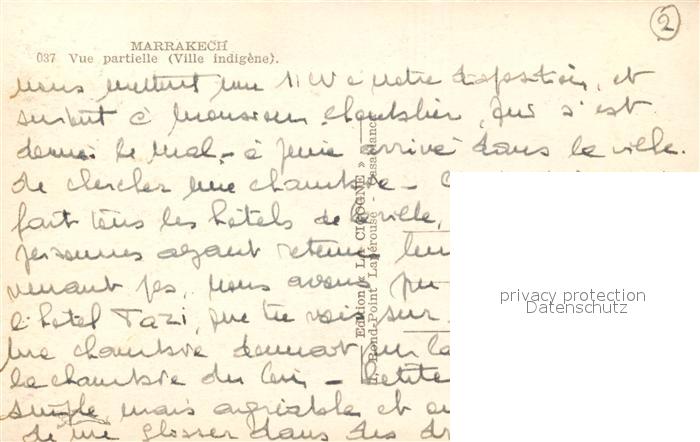 2
MARRAKECH
037 Vue partielle (Ville indigène).
nous mettent une à notre disposition, et
surtout à monsieur, qui s'est
donné le mal, à peine arrivé dans la ville
de chercher une chambre -
fait tous les hôtels de la ville,
personnes ayant retenu
venant pas, nous avons pu
l'hôtel Tazi, que tu vois sur
une chambre donnant sur la
la chambre du
simple, mais agréable et
de me glisser dans des
Edition « LA CIGOGNE »
Rond-Point Lapérouse - Casablanca
privacy protection
Datenschutz